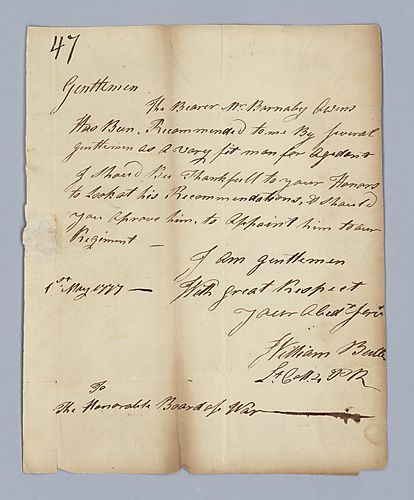 47
Gentlemen
The Bearer Mr Barnaby Owens
Has Ben Recommended to me By several
gentlemen as a vary fit man for agedant
I should Bee Thankfull to your Honors
to Look at his Recommendations, & should
you aprove him, to appoint him to our
Regiment —
I am gentlemen
With great Respect
1st May 1777 —
your Obedt Serv
William Butler
Lt Coll. 4 P R
To
The Honorable Board of War